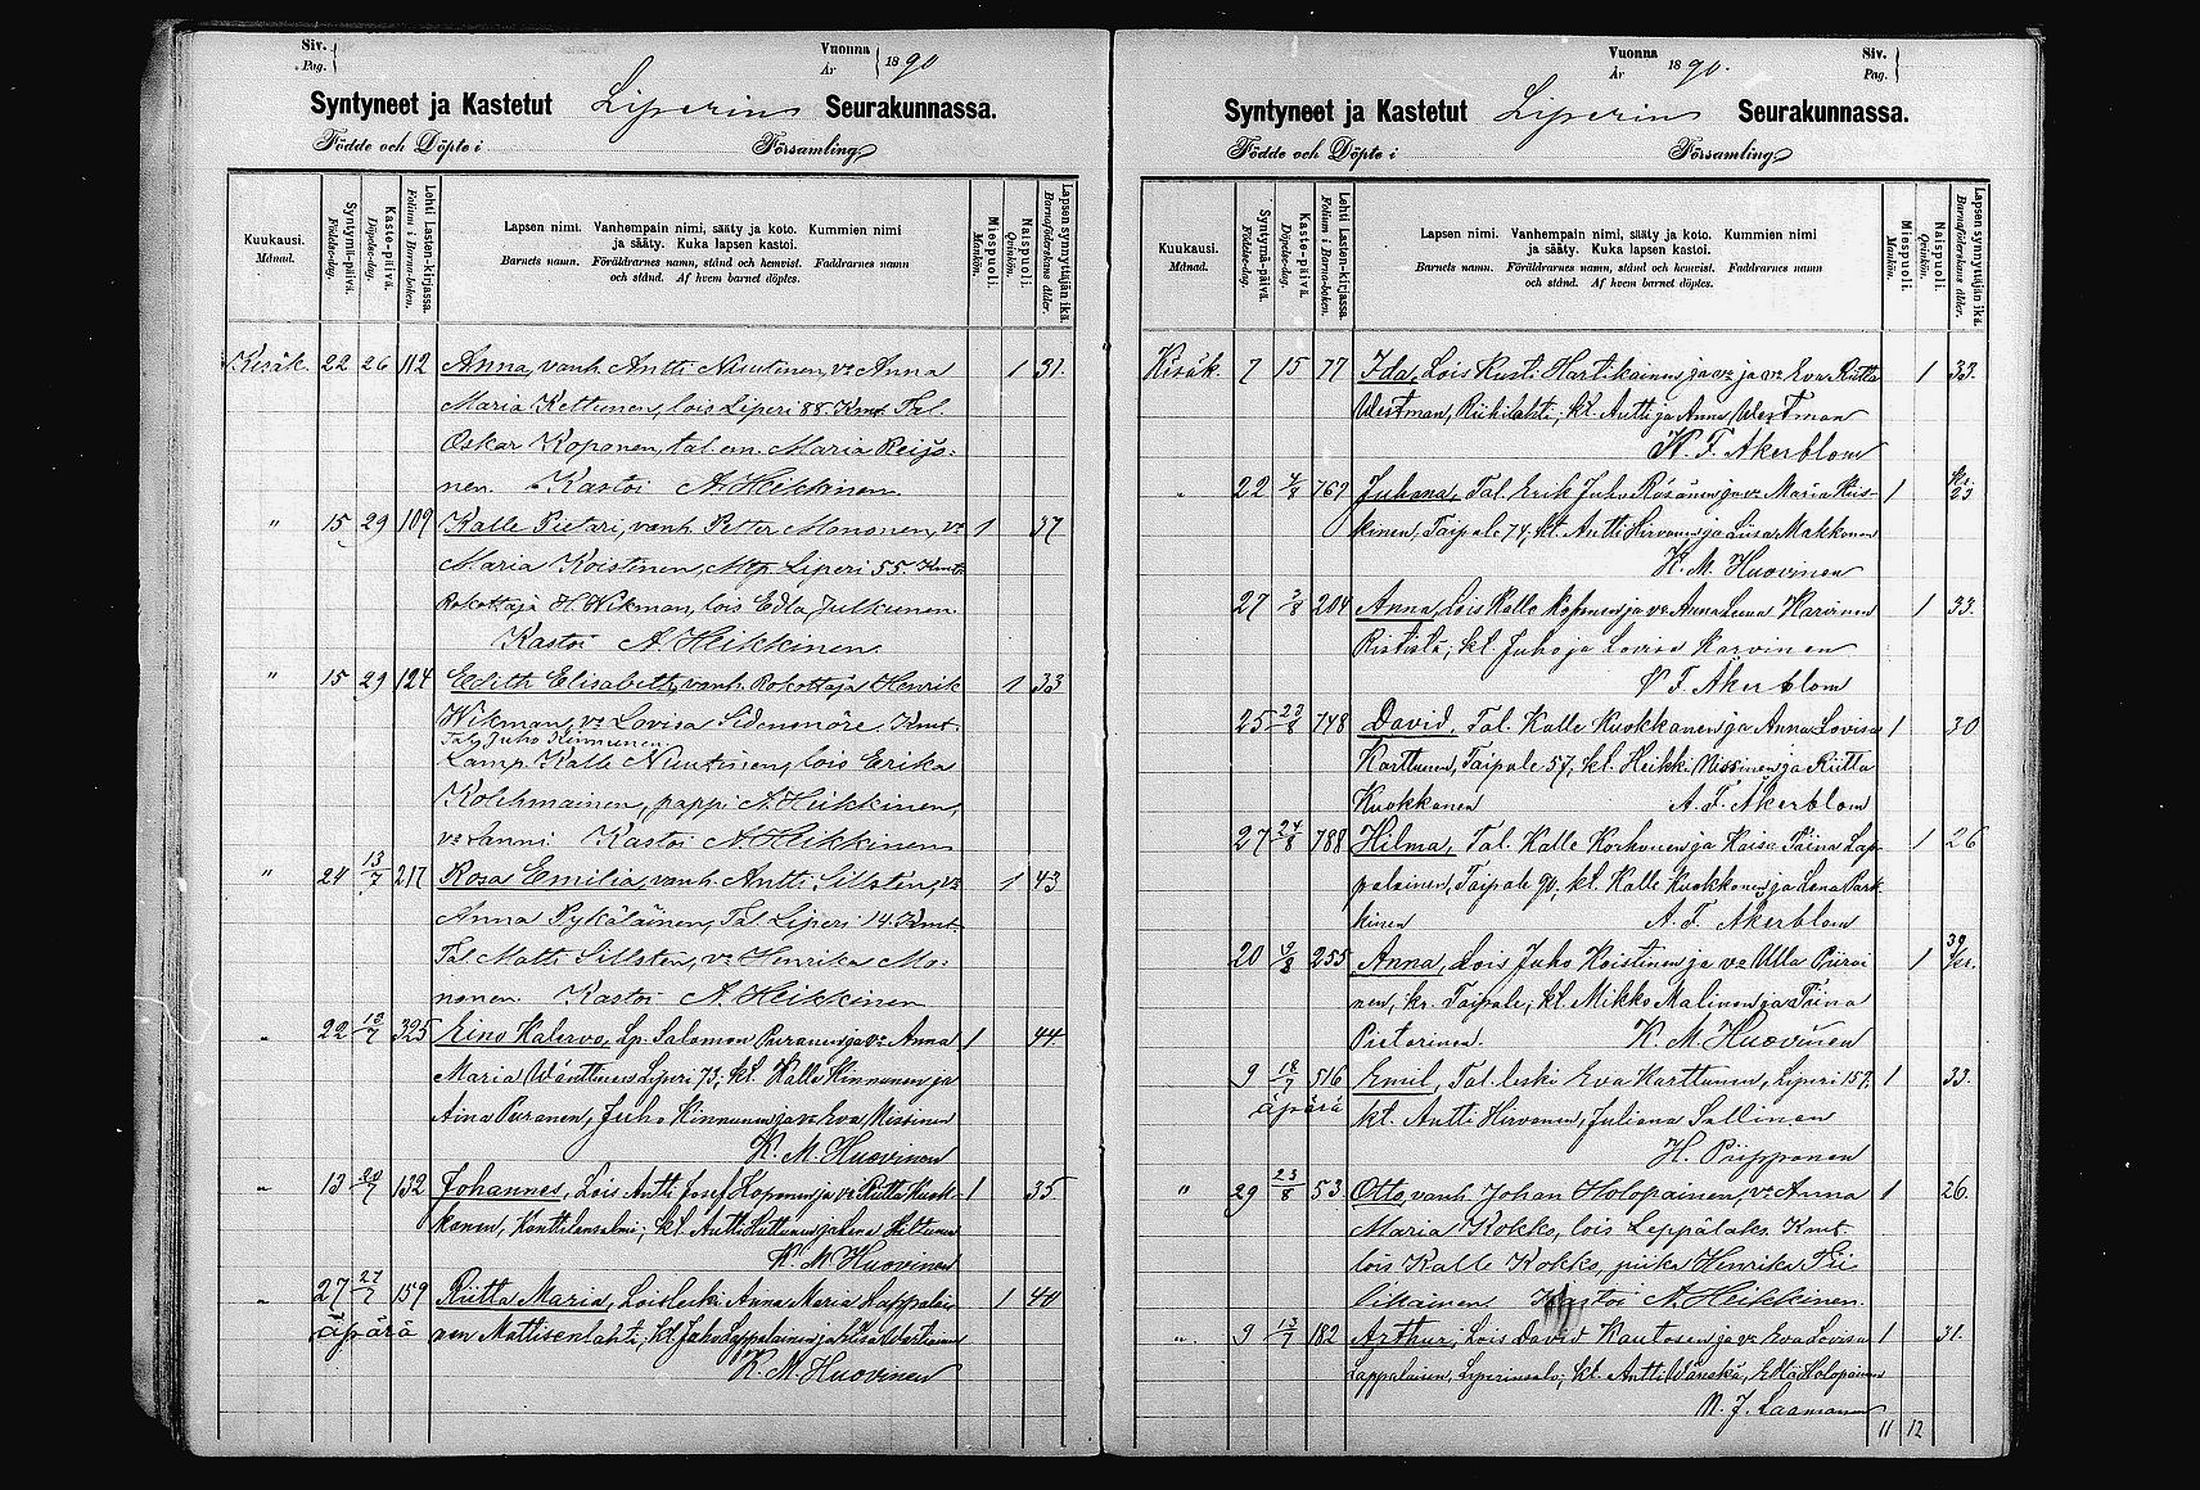 Siv.
Pag.
Vuonna
År
1890
Syntyneet ja Kastetut Liperin Seurakunnassa.
Födde och Döpte i Församling
Kuukausi.
Månad.
Syntymä-päivä.
Födelse-dag.
Kaste-päivä.
Döpelse-dag.
Lehti Lasten-kirjassa.
Folium i Barna-boken.
Lapsen nimi. Vanhempain nimi, sääty ja koto. Kummien nimi
ja sääty. Kuka lapsen kastoi.
Barnets namn. Föräldrarnes namn, stånd och hemvist. Faddrarnes namn
och stånd. Af hvem barnet döptes.
Miespuoli.
Mankön.
Naispuoli.
Qvinkön.
Lapsen synnyttäjän ikä.
Barnaföderskans ålder.
Kesäk. 22 26 112 Anna, vanh. Antti Nuutinen, vo Anna 1 31.
Maria Kettunen, lois Liperi 88. Kmt. Tal.
Oskar Koponen, tal. em. Maria Reijo=
nen. Kastoi A. Heikkinen.
" 15 29 109 Kalle Pietari, vanh. Petter Mononen, vo 1 37
Maria Koistinen, Mtp. Liperi 55. Kmt.
Rokottaja H. Wikman, lois Edla Julkunen.
Kastoi A. Heikkinen.
" 15 29 124 Edith Elisabeth, vanh. Rokottaja Henrik 1 33
Wikman, vo Lovisa Sidensnöre. Kmt.
Tal. Juho Kinnunen.
Lamp. Kalle Nuutinen, lois Erika
Kolehmainen, pappi A. Heikkinen,
vo Sanni. Kastoi A. Heikkinen
" 24 13/7 217 Rosa Emilia, vanh. Antti Sillsten, vo 1 43
Anna Pykäläinen, Tal. Liperi 14. Kmt.
Tal. Matti Sillsten, vo Henrika Mo=
nonen. Kastoi A. Heikkinen
" 22 13/7 325 Eino Kalervo, Lp. Salomon Puranen ja vo Anna 1 44.
Maria Wänttinen Liperi 73; kl. Kalle Kinnunen ja
Aina Puranen, Juho Kinnunen ja vo Eva Nissinen
K. M. Huovinen
" 13 20/7 132 Johannes, Lois Antti Josef Koponen ja vo Riitta Kuok- 1 35
kanen, Konttilansalmi; kl. Antti Huttunen ja Lena Hiltunen
K. M. Huovinen
" 27 27/7 159 Riitta Maria, Loisleski Anna Maria Lappalai- 1 40
äpärä nen Mattisenlahti; kl. Juho Lappalainen ja Liisa Wartiainen
K. M. Huovinen
Vuonna
År
1890.
Siv.
Pag.
Syntyneet ja Kastetut Liperin Seurakunnassa.
Födde och Döpte i Församling
Kuukausi.
Månad.
Syntymä-päivä.
Födelse-dag.
Kaste-päivä.
Döpelse-dag.
Lehti Lasten-kirjassa.
Folium i Barna-boken.
Lapsen nimi. Vanhempain nimi, sääty ja koto. Kummien nimi
ja sääty. Kuka lapsen kastoi.
Barnets namn. Föräldrarnes namn, stånd och hemvist. Faddrarnes namn
och stånd. Af hvem barnet döptes.
Miespuoli.
Mankön.
Naispuoli.
Qvinkön.
Lapsen synnyttäjän ikä.
Barnaföderskans ålder.
Kesäk. 7 15 77 Ida, Lois Kusti Hartikainen ja vo ja vo Eva Riitta 1 33.
Westman, Riihilahti; kl. Antti ja Anna Westman
K. F. Akerblom
" 22 4/8 769 Juhana, Tal. Erik Juho Räsänen ja vo Maria Kiis- 1 23
kinen, Taipale 74; kl. Antti Hirvonen ja Liisa Makkonen
K. M. Huovinen
27 3/8 204 Anna, Lois Kalle Koponen ja vo Anna Leena Karvinen 1 33.
Rististä; kl. Juho ja Lovisa Karvinen
F. Åkerblom
25 23/8 748 David, Tal. Kalle Kuokkanen ja Anna Lovisa 1 30
Karttunen, Taipale 57; kl. Heikki Nissinen ja Riitta
Kuokkanen A. F. Åkerblom
27 24/8 788 Hilma, Tal. Kalle Korhonen ja Kaisa Tiina Lap- 1 26
palainen, Taipale 90; kl. Kalle Kuokkanen ja Lena Park-
kinen A. F. Akerblom
20 9/8 255 Anna, Lois Juho Koistinen ja vo Ulla Piiroi 1 39
nen, kr. Taipale; kl. Mikko Malinen ja Tiina
Pietarinen. K. M. Huovinen
9 18/7 516 Emil, Tal. leski Eva Karttunen, Liperi 157. 1 33.
äpärä kl. Antti Hirvonen, Juliana Sallinen
H. Piipponen
" 29 23/8 53 Otto, vanh. Johan Holopainen, vo Anna 1 26.
Maria Kokko, lois Leppälaks. Kmt.
lois Kalle Kokko, piika Henrika Tii
likainen. Kastoi A. Heikkinen.
" 9 13/7 182 Arthur; Lois David Kautonen ja vo Eva Lovisa 1 31.
Lappalainen, Liperinsalo; kl. Antti Wänskä, Edla Holopainen
N. J. Laamanen
11 12